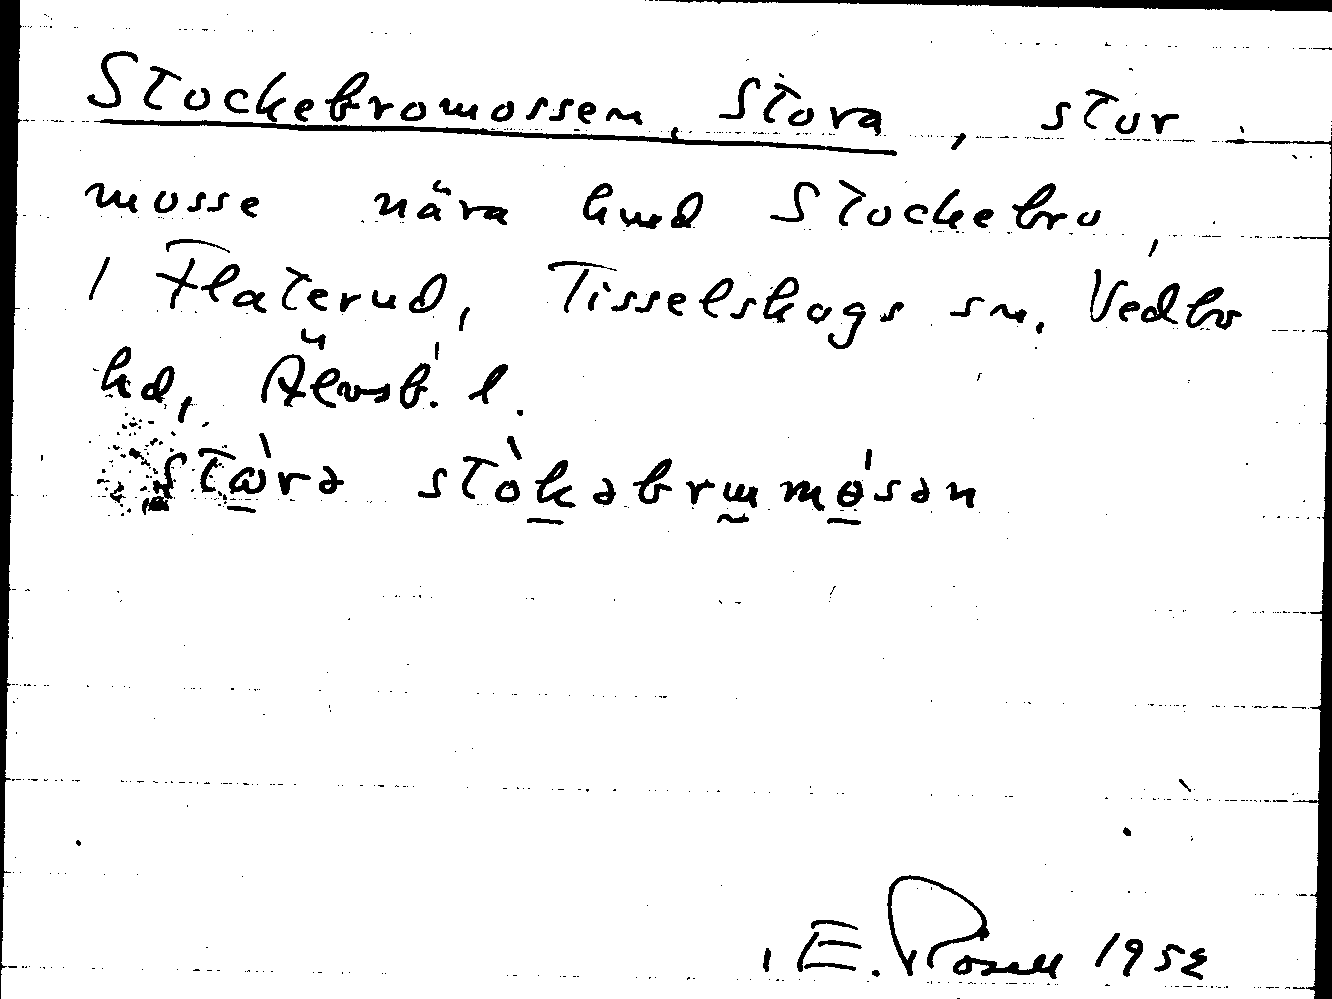 Stockebromossen, Stora, stor
mosse nära hmd Stockebro,
1 Flaterud, Tisselskogs sn, Vedbo
hd, Älvsb. l.
E. Rosell 1952